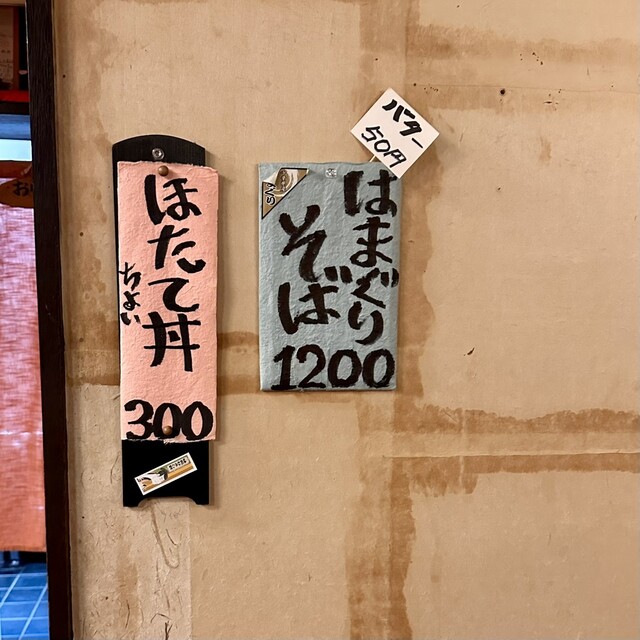 バター
50円
はまぐり
そば
1200
ほたて丼
ちょい
300